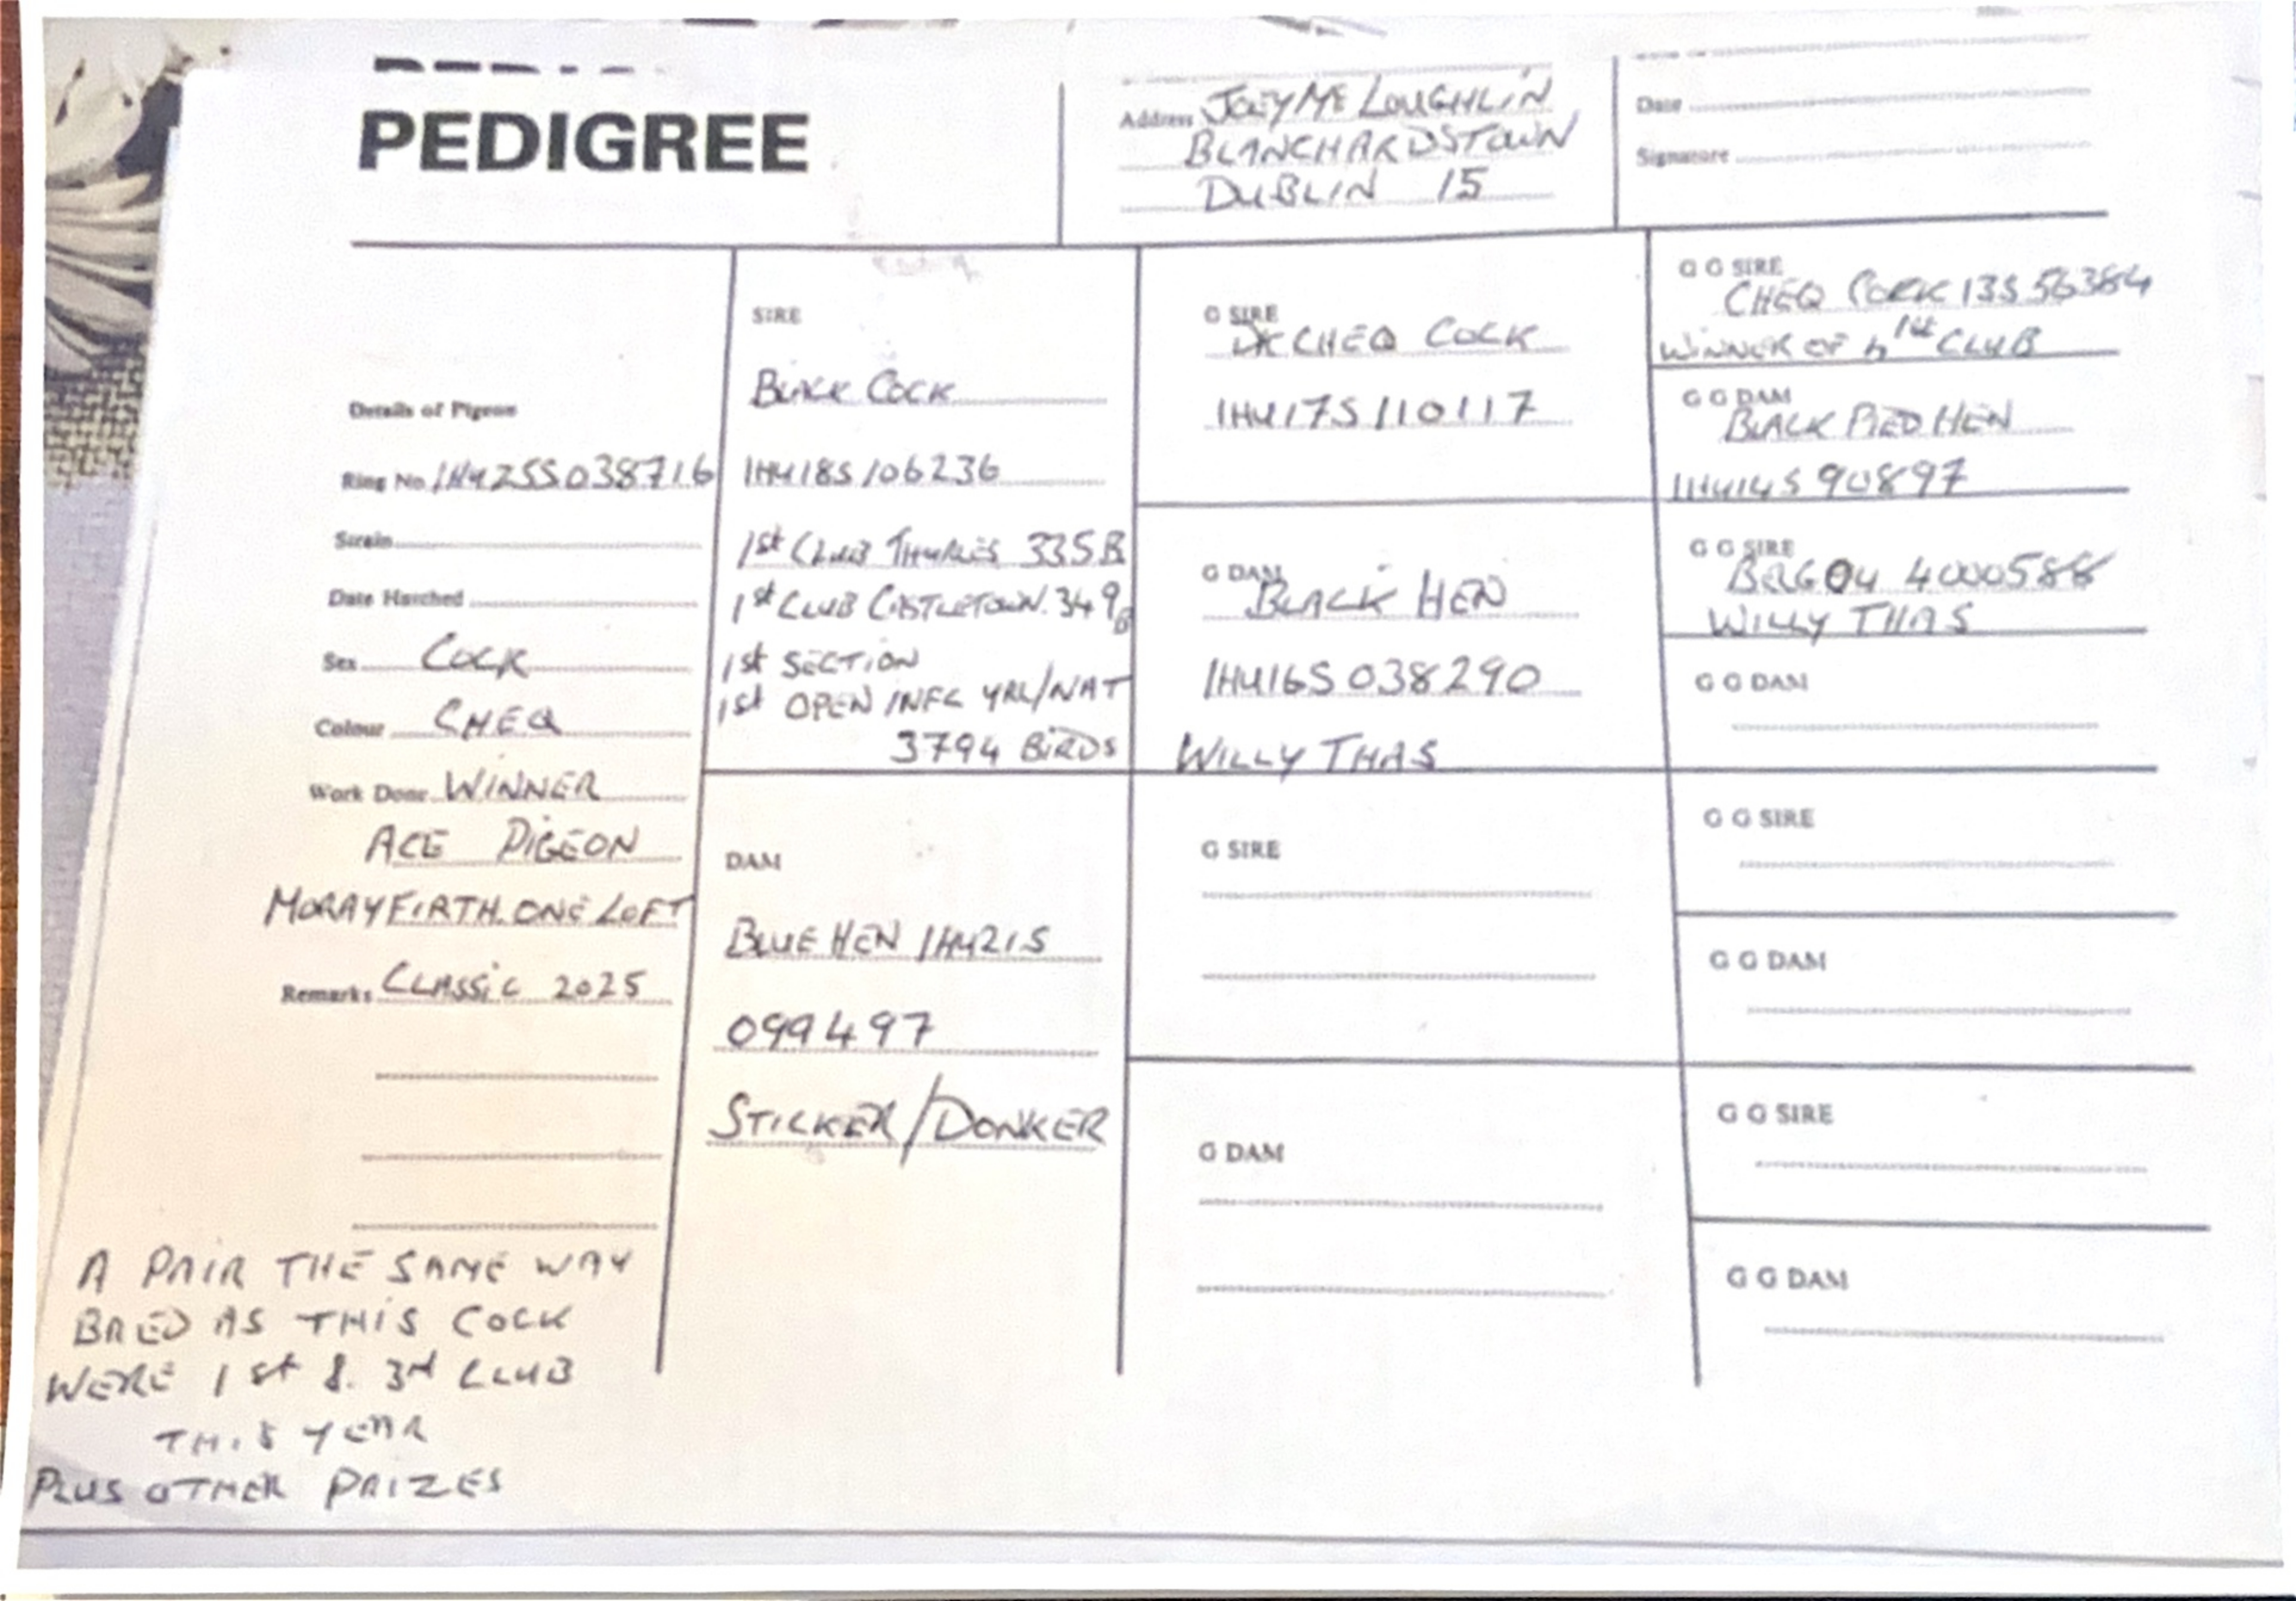 PEDIGREE
Address JOEY MC LOUGHLIN
BLANCHARDSTOWN
DUBLIN 15
Date
Signature
Details of Pigeon
Ring No. IHU25S038716
Strain
Date Hatched
Sex COCK
Colour CHEQ
Work Done WINNER
ACE PIGEON
MORAYFIRTH ONE LOFT
Remarks CLASSIC 2025
A PAIR THE SAME WAY
BRED AS THIS COCK
WERE 1st & 3rd CLUB
THIS YEAR
PLUS OTHER PRIZES
SIRE
BLACK COCK
IHU18S106236
1st CLUB THURLES 335B
1st CLUB CASTLETOWN. 349B
1st SECTION
1st OPEN INFC YRL/NAT
3794 BIRDS
DAM
BLUE HEN IHU21S
099497
STICKER/DONKER
G SIRE
DK CHEQ COCK
IHU17S110117
G DAM
BLACK HEN
IHU16S038290
WILLY THAS
G SIRE
G DAM
G G SIRE
CHEQ COCK 13S56384
WINNER OF 1st CLUB
G G DAM
BLACK PIED HEN
IHU14S90897
G G SIRE
BELG04 4000588
WILLY THAS
G G DAM
G G SIRE
G G DAM
G G SIRE
G G DAM